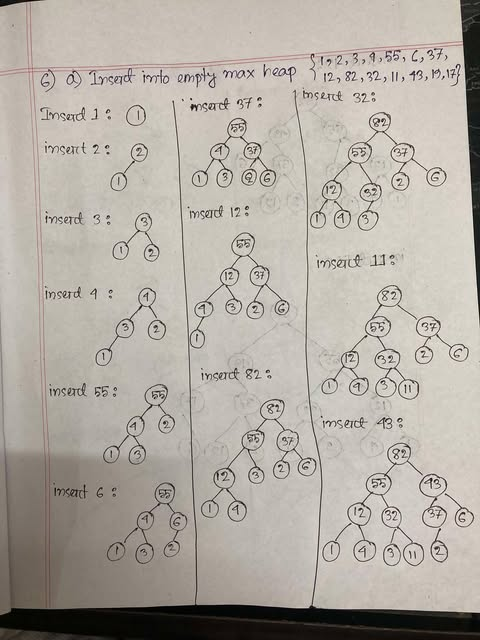 6) a) Insert into empty max heap {1, 2, 3, 4, 55, 6, 37,
12, 82, 32, 11, 43, 19, 17}
Insert 1 :
1
insert 2 :
2
1
insert 3 :
3
1 2
insert 4 :
4
3 2
1
insert 55 :
55
4 2
1 3
insert 6 :
55
4 6
1 3 2
insert 37 :
55
4 37
1 3 2 6
insert 12 :
55
12 37
4 3 2 6
1
insert 82 :
82
55 37
12 3 2 6
1 4
insert 32 :
82
55 37
12 32 2 6
1 4 3
insert 11 :
82
55 37
12 32 2 6
1 4 3 11
insert 43 :
82
55 43
12 32 37 6
1 4 3 11 2